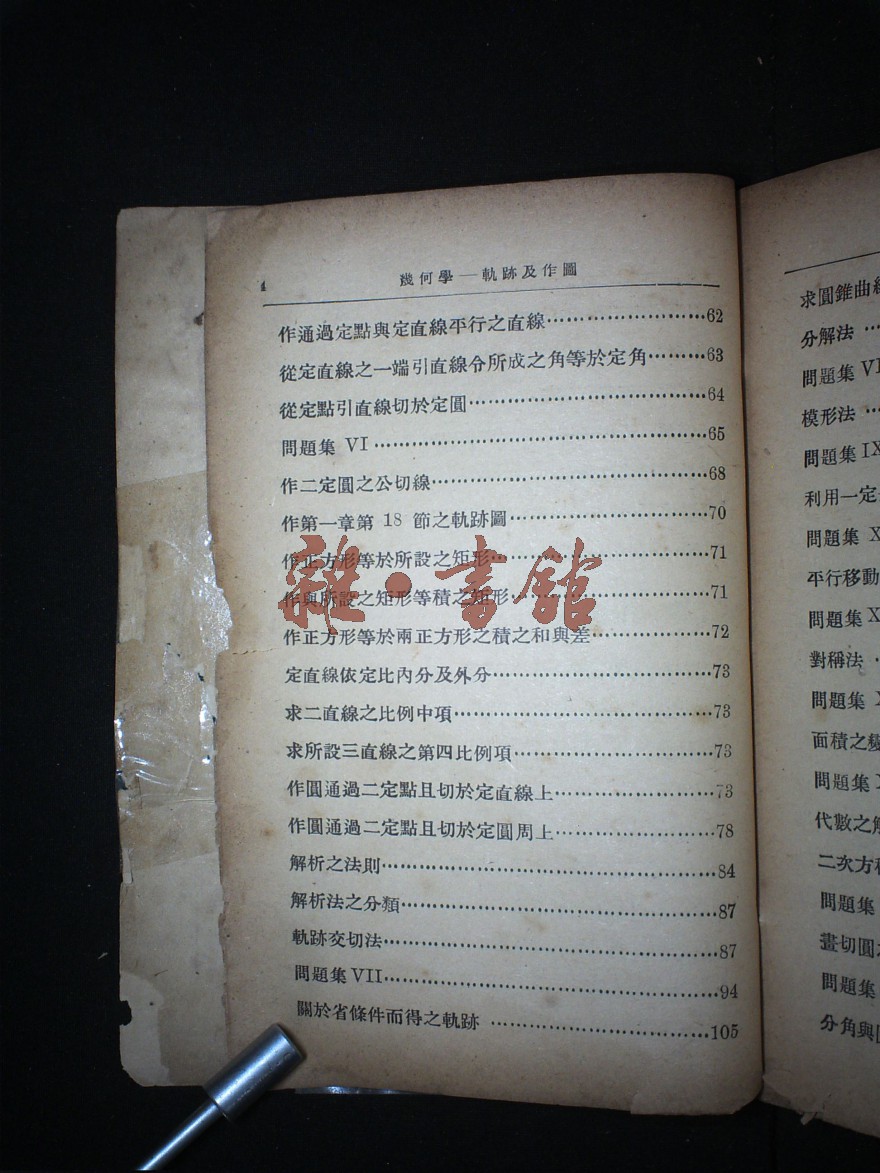 4 幾何學——軌跡及作圖
作通過定點與定直線平行之直線……62
從定直線之一端引直線令所成之角等於定角……63
從定點引直線切於定圓……64
問題集 VI……65
作二定圓之公切線……68
作第一章第 18 節之軌跡圖……70
作正方形等於所設之矩形……71
作與所設之矩形等積之矩形……71
作正方形等於兩正方形之積之和與差……72
定直線依定比內分及外分……73
求二直線之比例中項……73
求所設三直線之第四比例項……73
作圓通過二定點且切於定直線上……73
作圓通過二定點且切於定圓周上……78
解析之法則……84
解析法之分類……87
軌跡交切法……87
問題集 VII……94
關於省條件而得之軌跡……105
雜·書館
求圓錐曲線
分解法……
問題集 VI
模形法……
問題集 IX
利用一定
問題集 X
平行移動
問題集 X
對稱法
問題集
面積之變
問題集
代數之解
二次方程
問題集
畫切圓
問題集
分角與